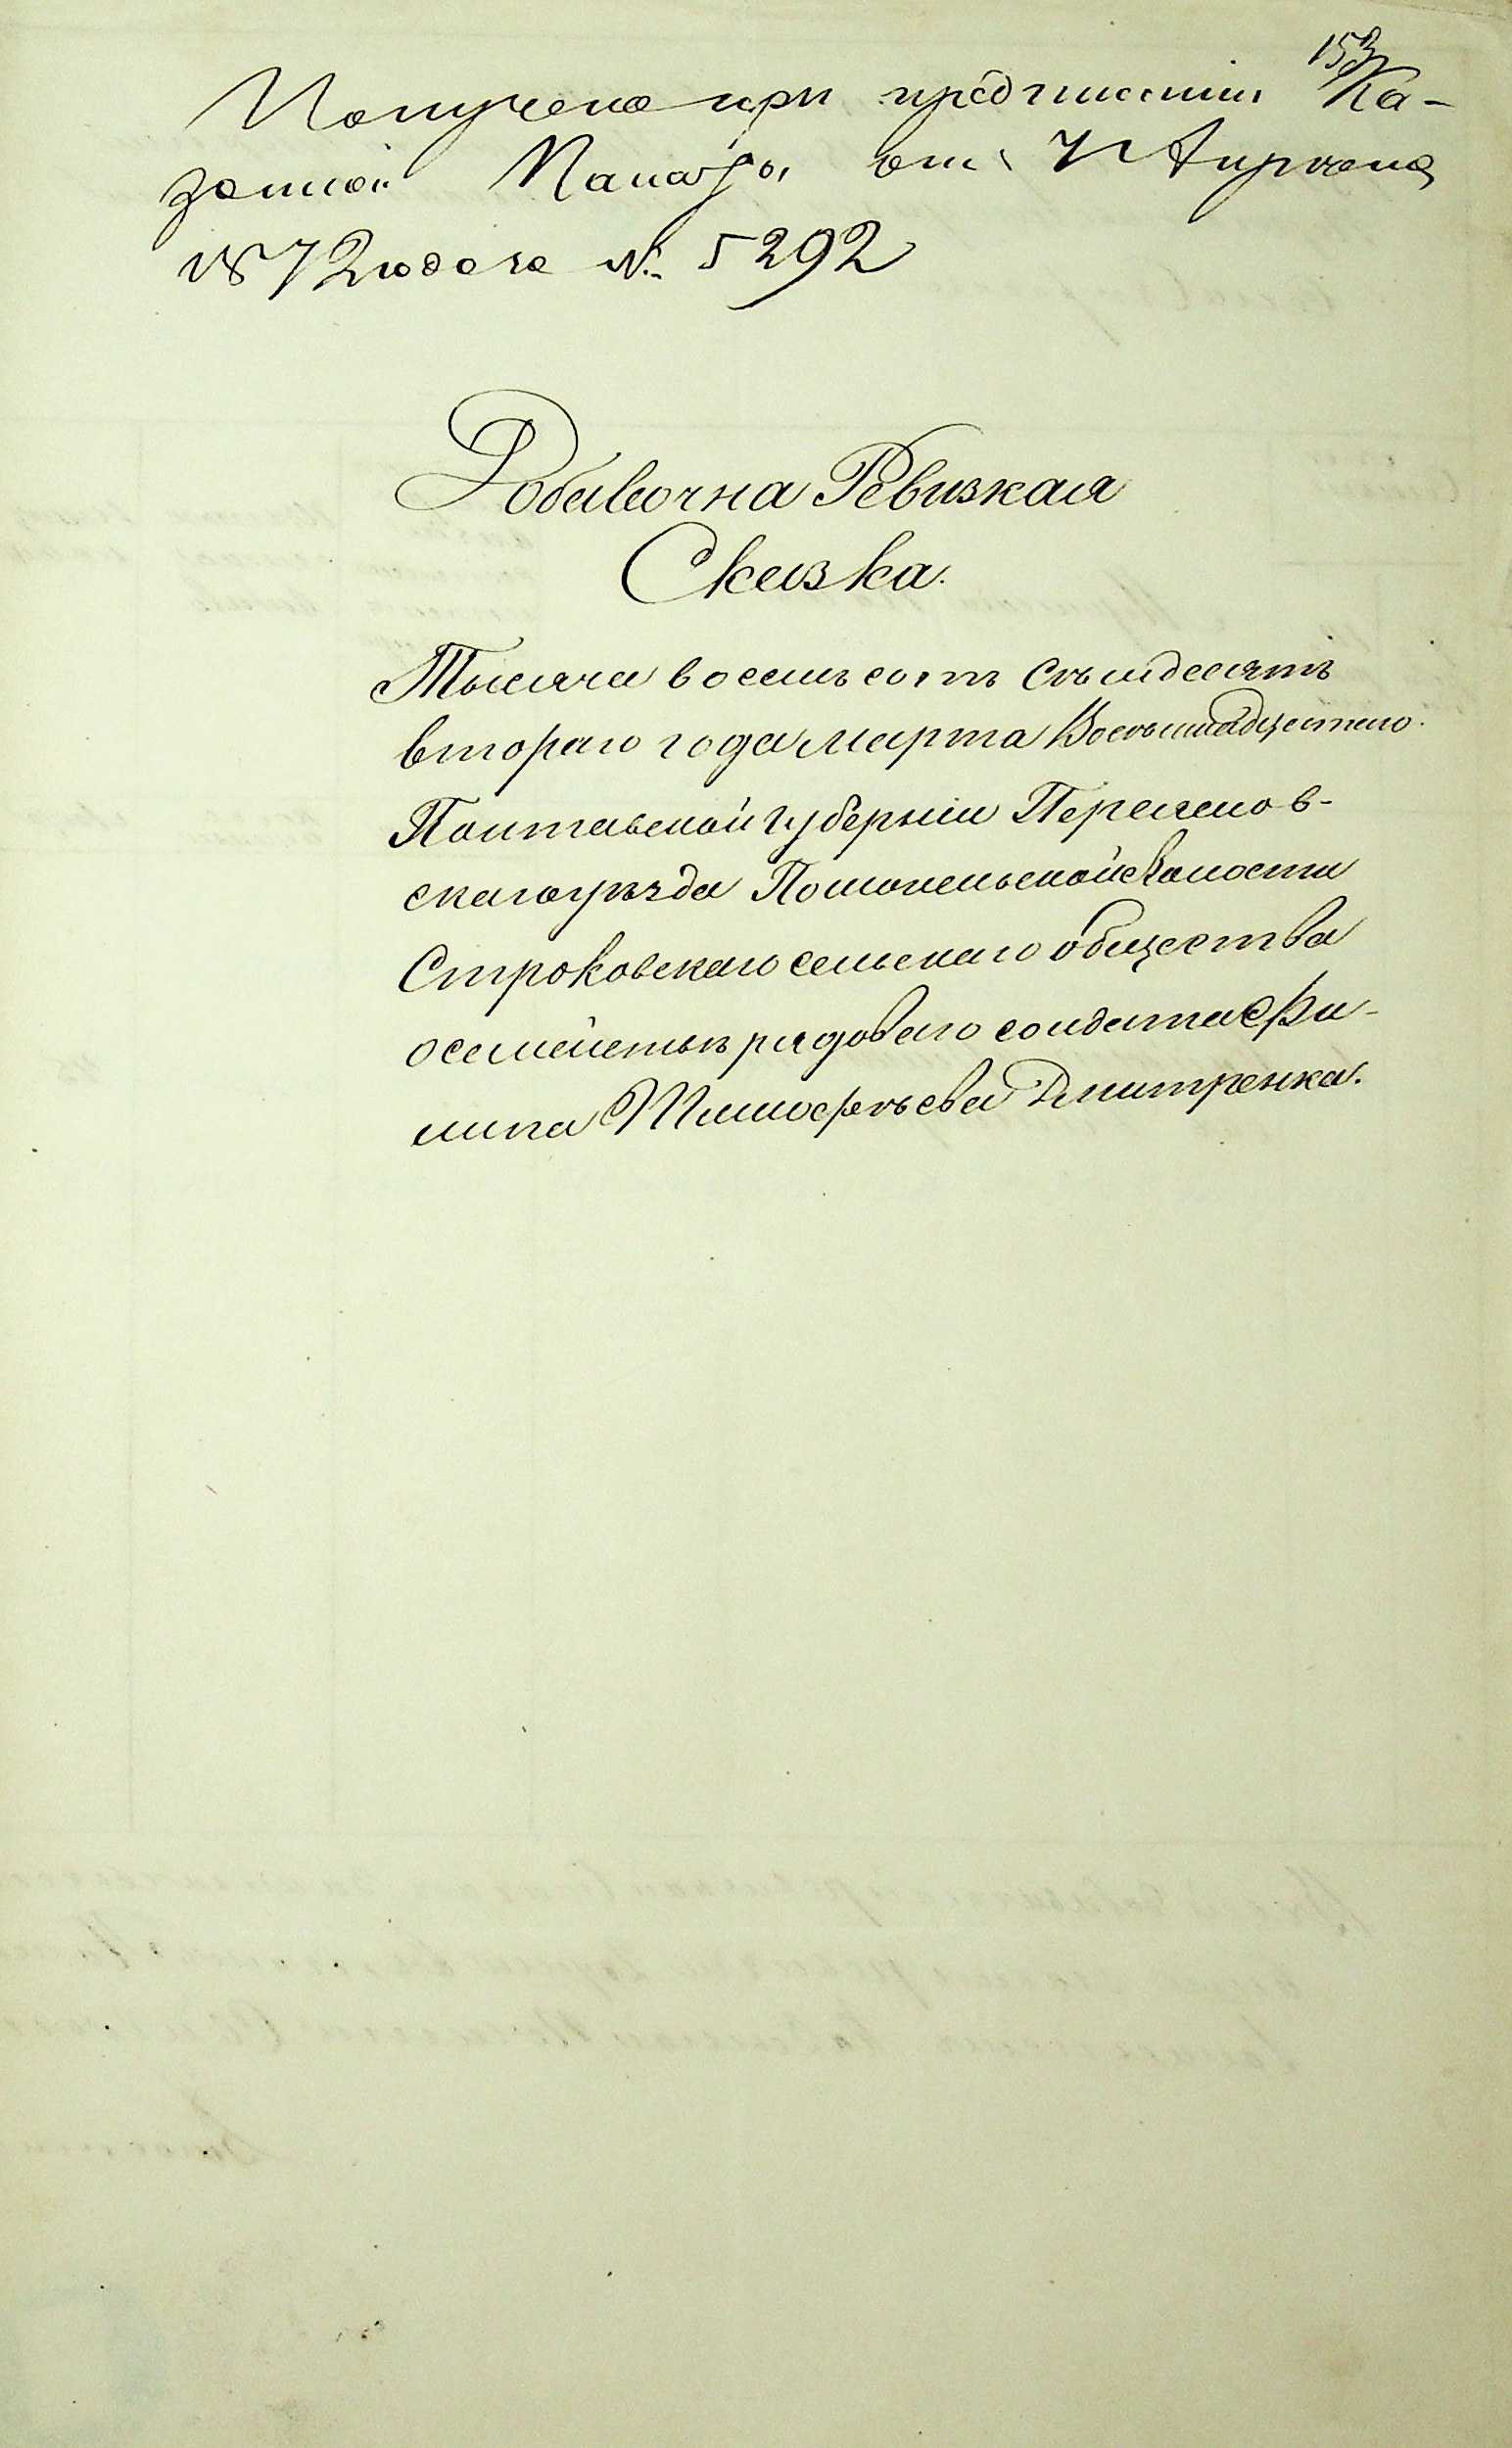 153
Получена при предписании Ка-
зенной Палаты отъ Апреля
1872 года за № 5292
Добавочна Ревизкая
Сказка.
Тысяча восемьсотъ семьдесятъ
втораго года марта Восемнадцатаго.
Полтавской губерніи Переяслов-
скаго уѣзда Помокельской волости
Строковскаго сельскаго общества
о семействѣ рядоваго солдата Фи-
липа Тимофеева Дмитренка.